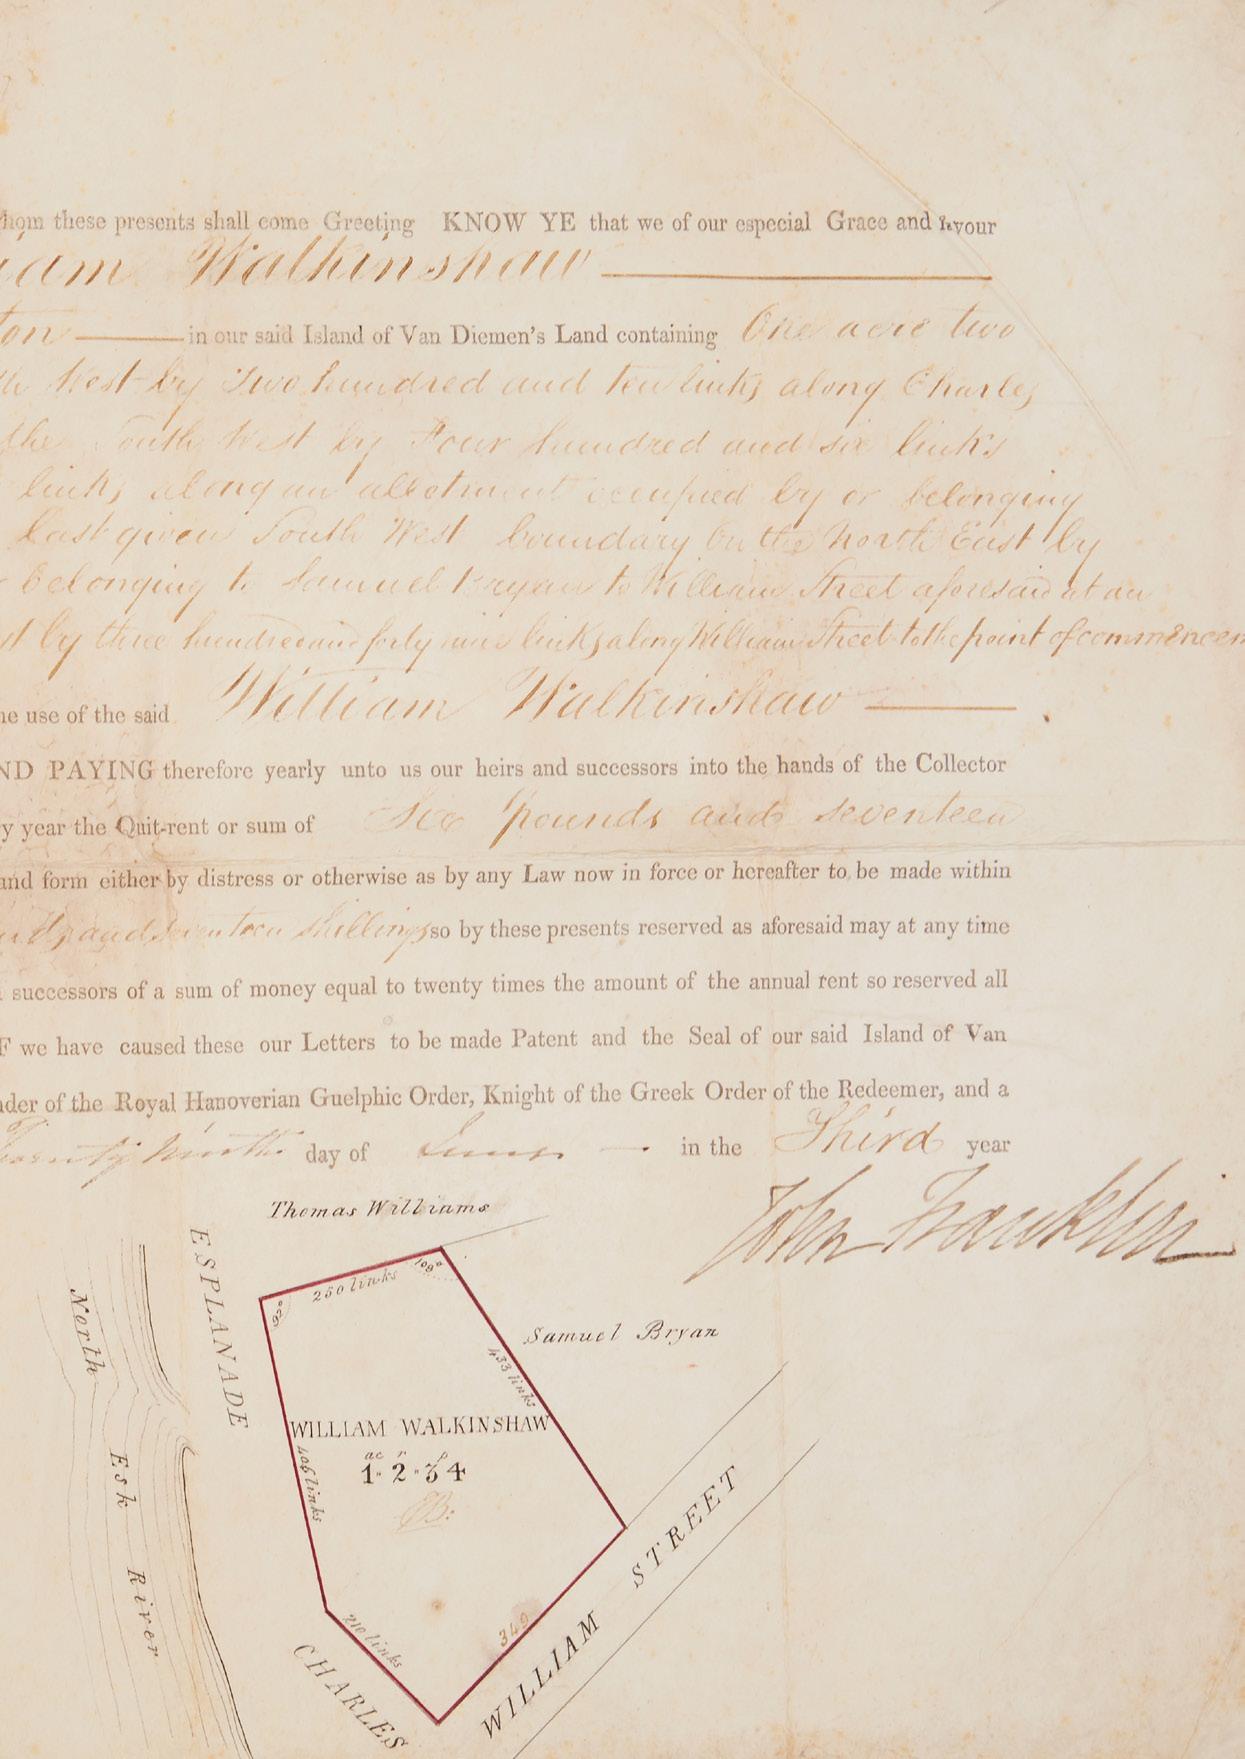 whom these presents shall come Greeting KNOW YE that we of our especial Grace and favour
iam Walkinshaw
ton in our said Island of Van Diemen's Land containing One acre two
th West by Two hundred and ten links along Charles
the South West by Four hundred and six links
links along an allotment occupied by or belonging
last given South West boundary on the North East by
belonging to Samuel Bryan to William Street aforesaid at an
st by three hundred and forty nine links along William Street to the point of commencem
he use of the said William Walkinshaw
ND PAYING therefore yearly unto us our heirs and successors into the hands of the Collector
y year the Quit-rent or sum of pounds and seventeen
and form either by distress or otherwise as by any Law now in force or hereafter to be made within
and seventeen shillings so by these presents reserved as aforesaid may at any time
successors of a sum of money equal to twenty times the amount of the annual rent so reserved all
F we have caused these our Letters to be made Patent and the Seal of our said Island of Van
nder of the Royal Hanoverian Guelphic Order, Knight of the Greek Order of the Redeemer, and a
Twenty Ninth day of June in the Third year
John Franklin
Thomas Williams
ESPLANADE
250 links
109°
92°
North Esk River
Samuel Bryan
433 links
WILLIAM WALKINSHAW
ac r p
1 " 2 " 34
406 links
210 links
349
WILLIAM STREET
CHARLES